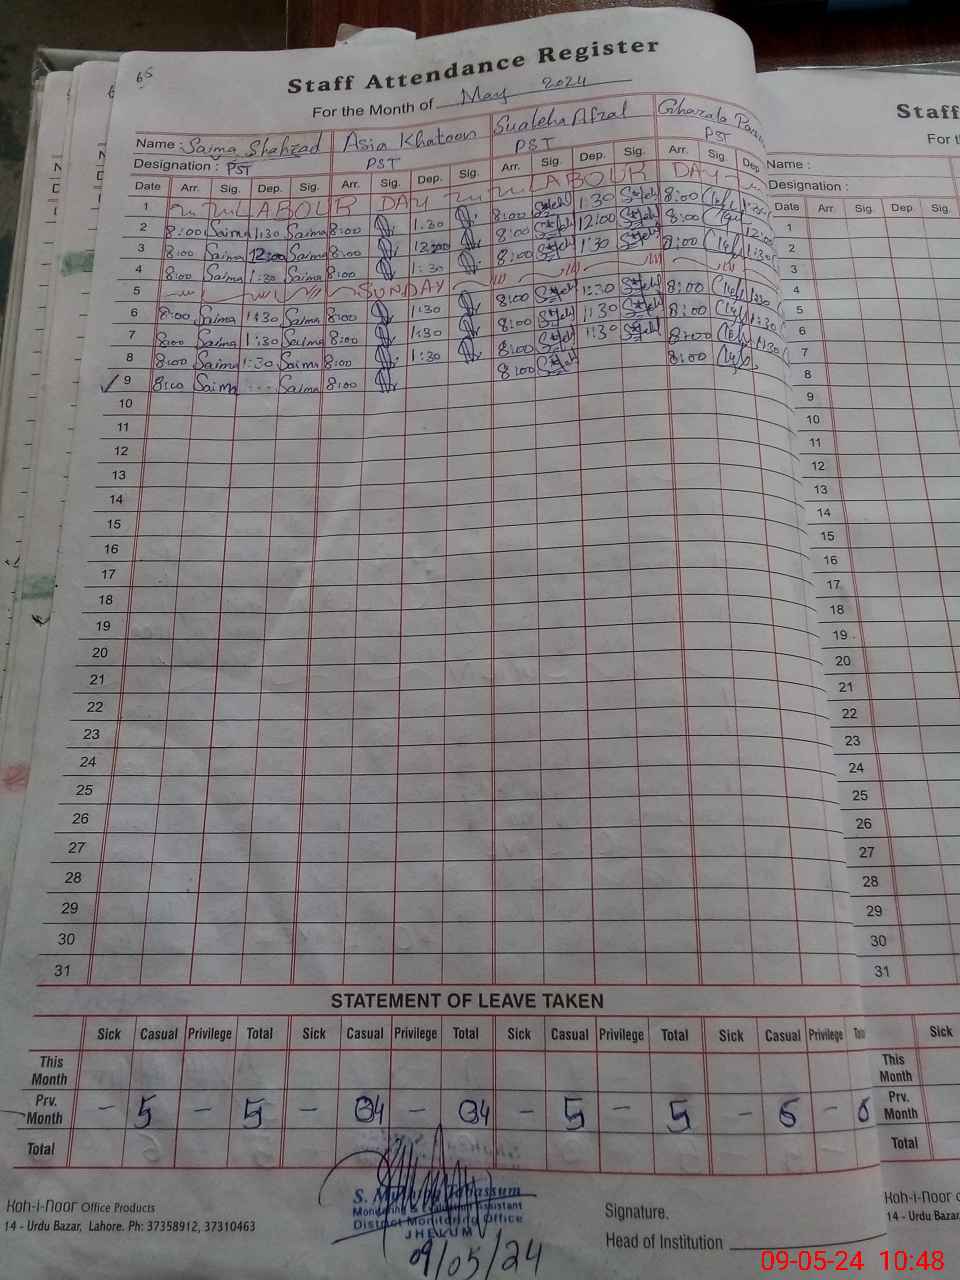 65
Staff Attendance Register
For the Month of May 2024
Name : Saima Shahzad Asia Khatoon Sualeha Afzal Ghazala
Designation : PST PST PST PST
Date Arr. Sig. Dep. Sig. Arr. Sig. Dep. Sig. Arr. Sig. Dep. Sig. Arr. Sig. Dep
1 LABOUR DAY LABOUR DAY
2 8:00 Saima 1:30 Saima 8:00 1:30 8:00 1:30 8:00
3 8:00 Saima 12:00 Saima 8:00 12:00 8:00 12:00 8:00 12:00
4 8:00 Saima 1:30 Saima 8:00 1:30 8:00 1:30 8:00 1:30
5 SUNDAY
6 8:00 Saima 1:30 Saima 8:00 1:30 8:00 1:30 8:00 1:30
7 8:00 Saima 1:30 Saima 8:00 1:30 8:00 1:30 8:00 1:30
8 8:00 Saima 1:30 Saima 8:00 1:30 8:00 1:30 8:00 1:30
9 8:00 Saima Saima 8:00 8:00 8:00
10
11
12
13
14
15
16
17
18
19
20
21
22
23
24
25
26
27
28
29
30
31
STATEMENT OF LEAVE TAKEN
Sick Casual Privilege Total Sick Casual Privilege Total Sick Casual Privilege Total Sick Casual Privilege
This Month
Prv. Month - 5 - 5 - 04 - 04 - 5 - 5 - 6 - 6
Total
Monitoring & Evaluation Assistant
District Monitoring Office
JHELUM
09/05/24
Koh-i-Noor Office Products
14 - Urdu Bazar, Lahore. Ph: 37358912, 37310463
Signature.
Head of Institution
Staff
Name :
Designation :
Date Arr. Sig. Dep. Sig.
1
2
3
4
5
6
7
8
9
10
11
12
13
14
15
16
17
18
19
20
21
22
23
24
25
26
27
28
29
30
31
Sick
This Month
Prv. Month
Total
Koh-i-Noor
14 - Urdu Bazar,
09-05-24 10:48